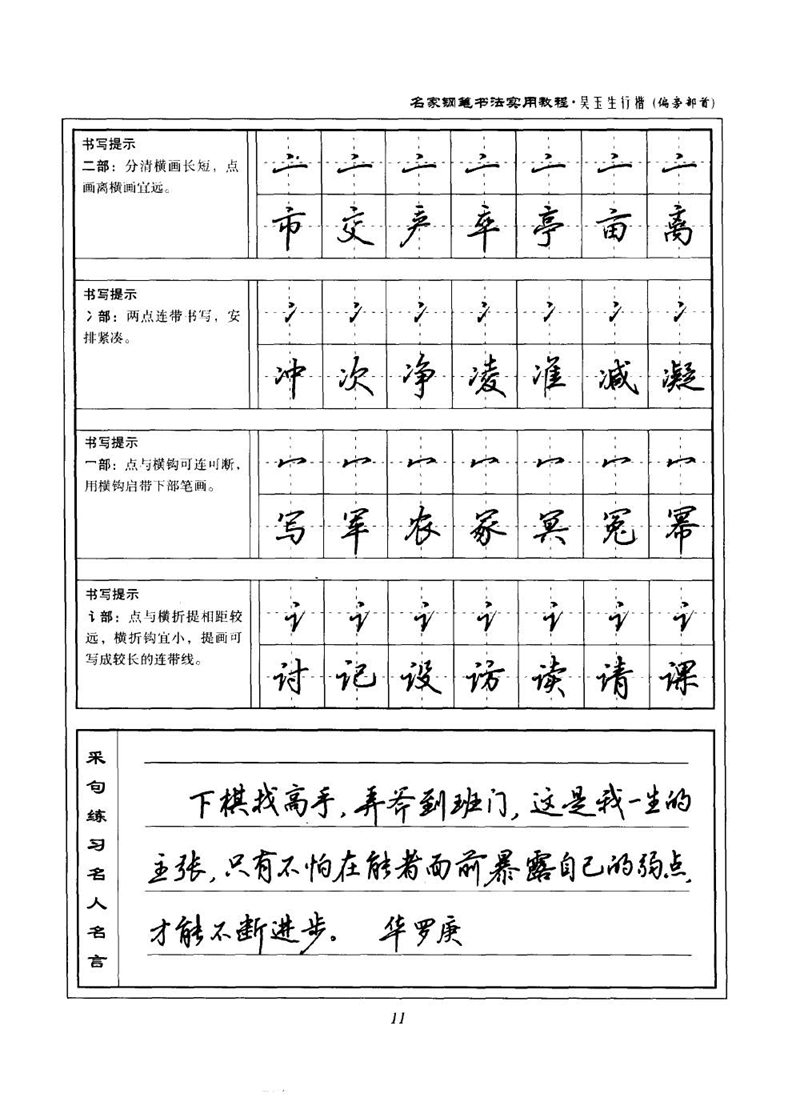 名家钢笔书法实用教程·吴玉生行楷(偏旁部首)
书写提示
亠部：分清横画长短，点
画离横画宜远。
亠 亠 亠 亠 亠 亠 亠
市 交 产 卒 亭 亩 离
书写提示
冫部：两点连带书写，安
排紧凑。
冫 冫 冫 冫 冫 冫 冫
冲 次 净 凌 准 减 凝
书写提示
冖部：点与横钩可连可断，
用横钩启带下部笔画。
冖 冖 冖 冖 冖 冖 冖
写 军 农 冢 冥 冤 幂
书写提示
讠部：点与横折提相距较
远，横折钩宜小，提画可
写成较长的连带线。
讠 讠 讠 讠 讠 讠 讠
讨 记 设 访 读 请 课
采句练习名人名言
下棋找高手，弄斧到班门，这是我一生的
主张，只有不怕在能者面前暴露自己的弱点，
才能不断进步。 华罗庚
11